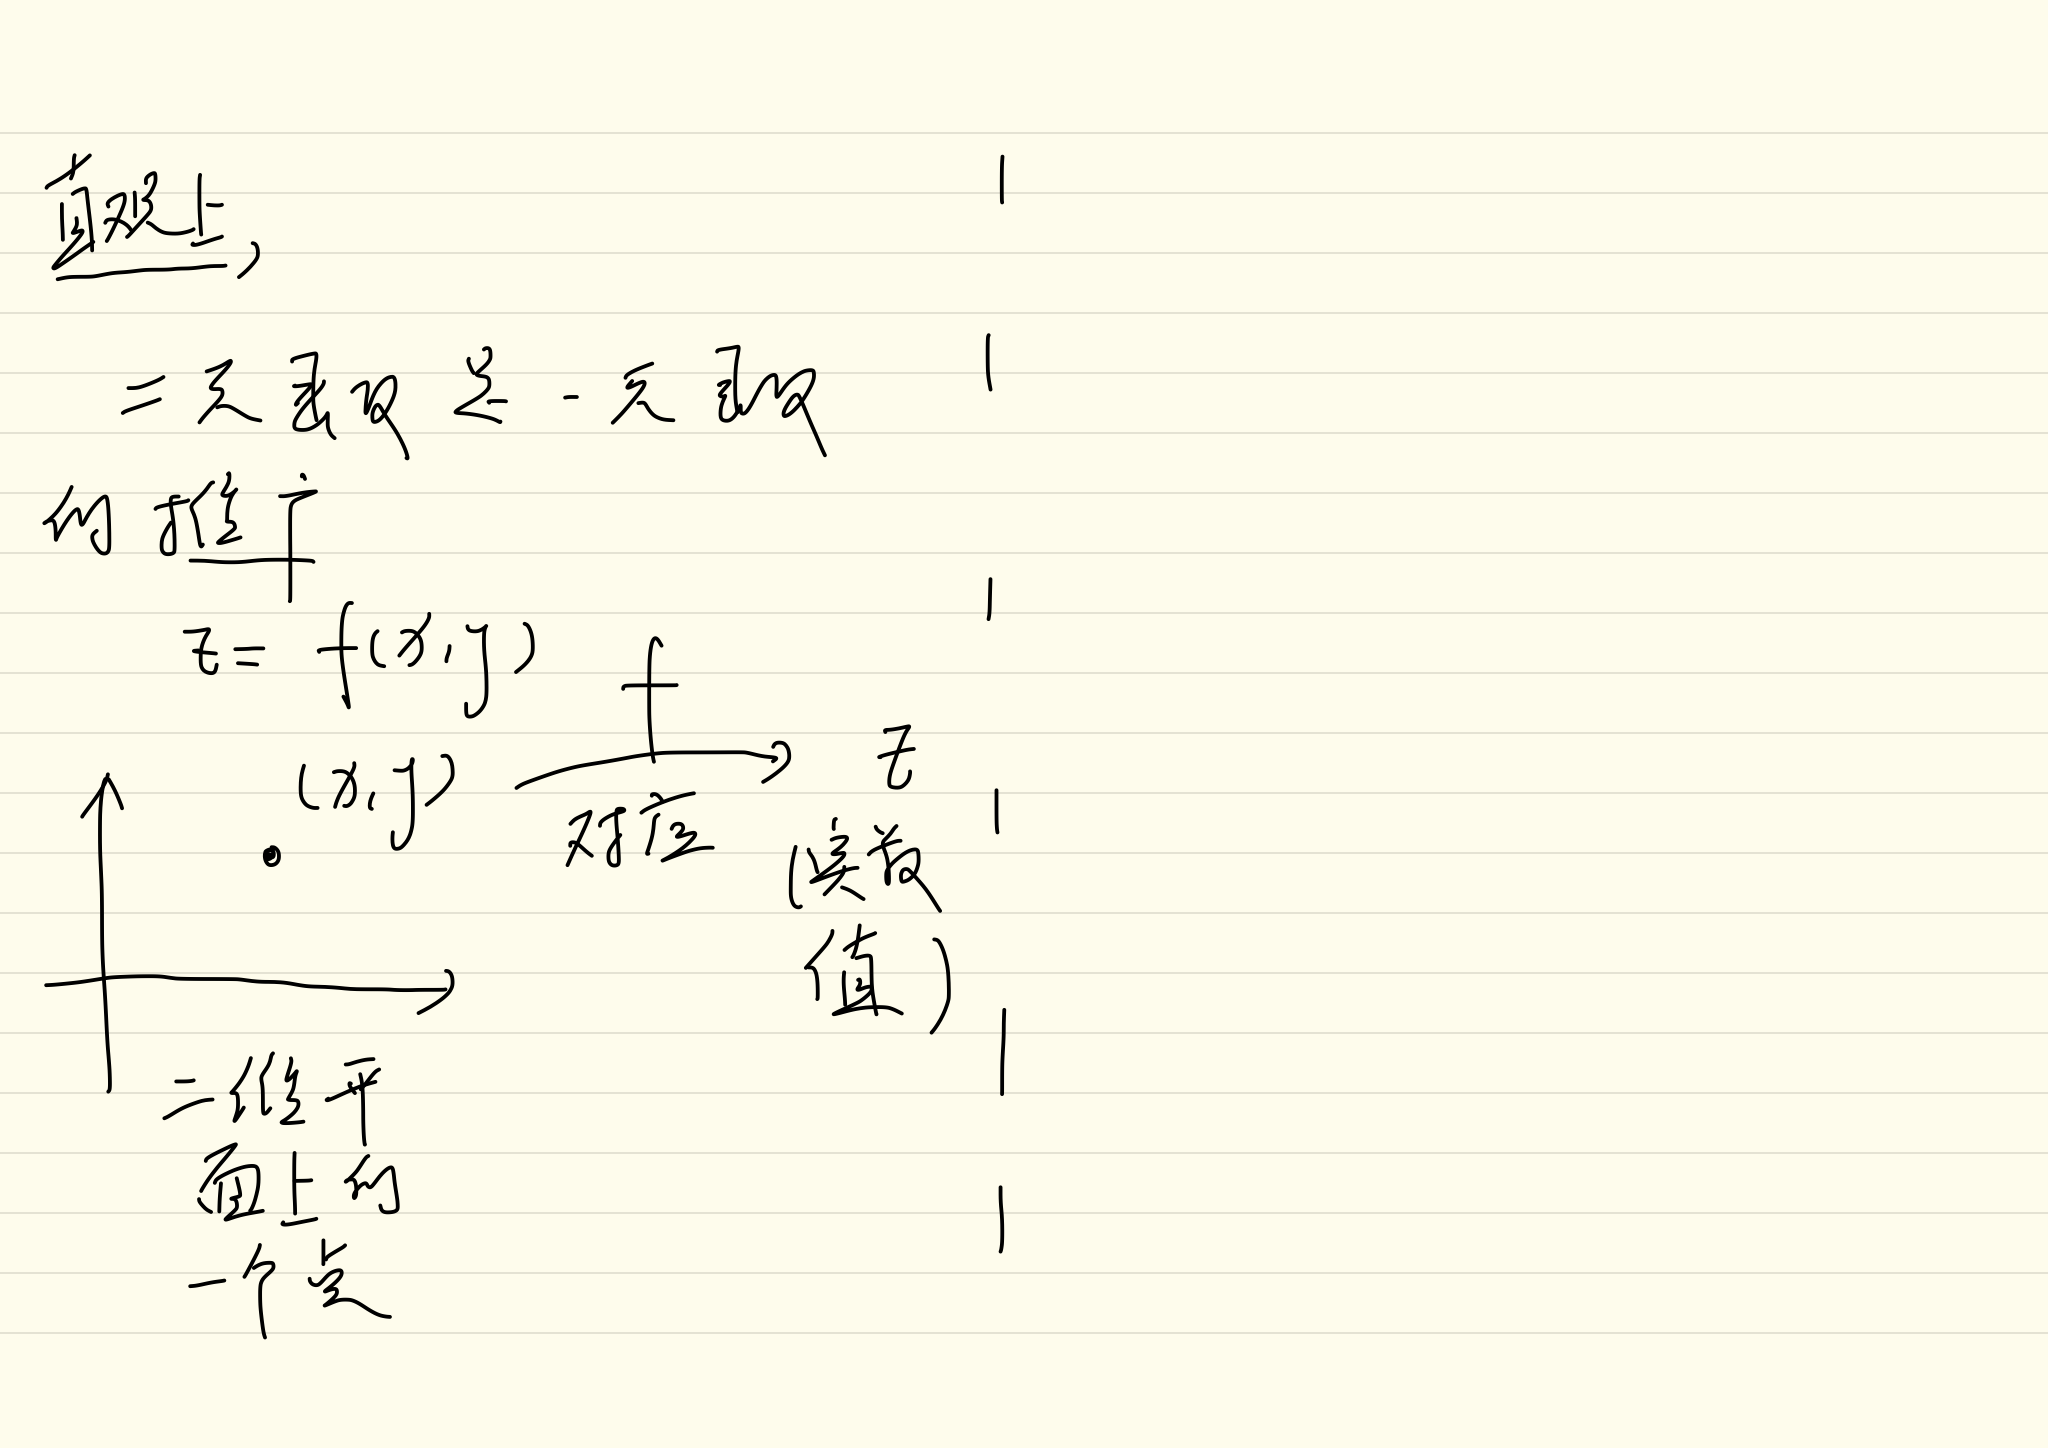 直观上,
二元函数是一元函数
的推广
z = f(x, y)
(x, y)
f
对应
z
(实数
值)
二维平
面上的
一个点